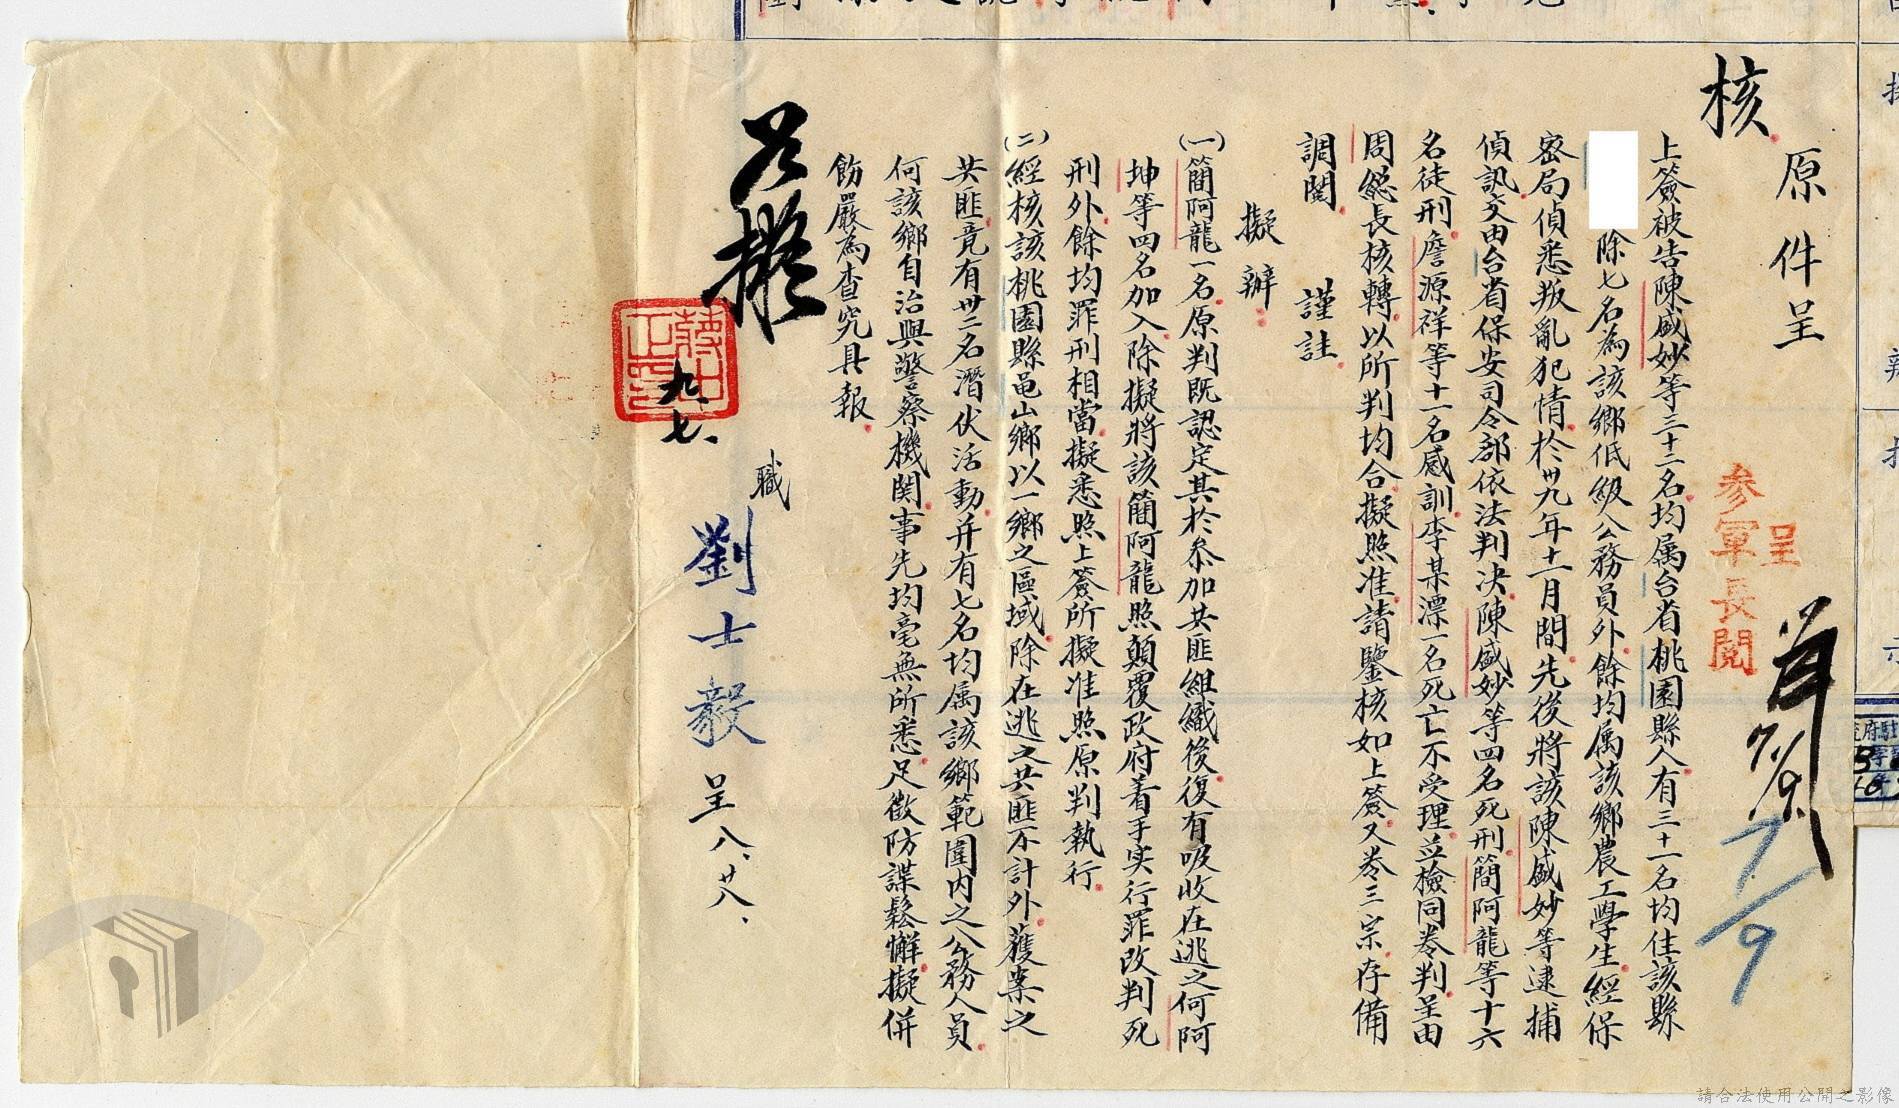 核
原件呈
呈
參軍長閱
7/9
7/9
上簽被告陳盛妙等三十二名均属台省桃園縣人有三十一名均住該縣
除七名為該鄉低級公務員外餘均属該鄉農工學生經保
密局偵悉叛亂犯情於卅九年十一月間先後將該陳盛妙等逮捕
偵訊交由台省保安司令部依法判决陳盛妙等四名死刑簡阿龍等十六
名徒刑詹源祥等十一名感訓李某漂一名死亡不受理並檢同卷判呈由
周總長核轉以所判均合擬照准請鑒核如上簽又卷三宗存備
調閱 謹註
擬辦
(一)簡阿龍一名原判既認定其於叅加共匪組織後復有吸收在逃之何阿
坤等四名加入除擬將該簡阿龍照顛覆政府着手实行罪改判死
刑外餘均罪刑相當擬悉照上簽所擬准照原判執行
(二)經核該桃園縣龟山鄉以一鄉之區域除在逃之共匪不計外獲案之
共匪竟有卅二名潛伏活動并有七名均属該鄉範圍内之公務人員
何該鄉自治與警察機関事先均毫無所悉足徵防諜鬆懈擬併
飭嚴為查究具報
職劉士毅呈八、廿八、
如擬
九、七、
請合法使用公開之影像